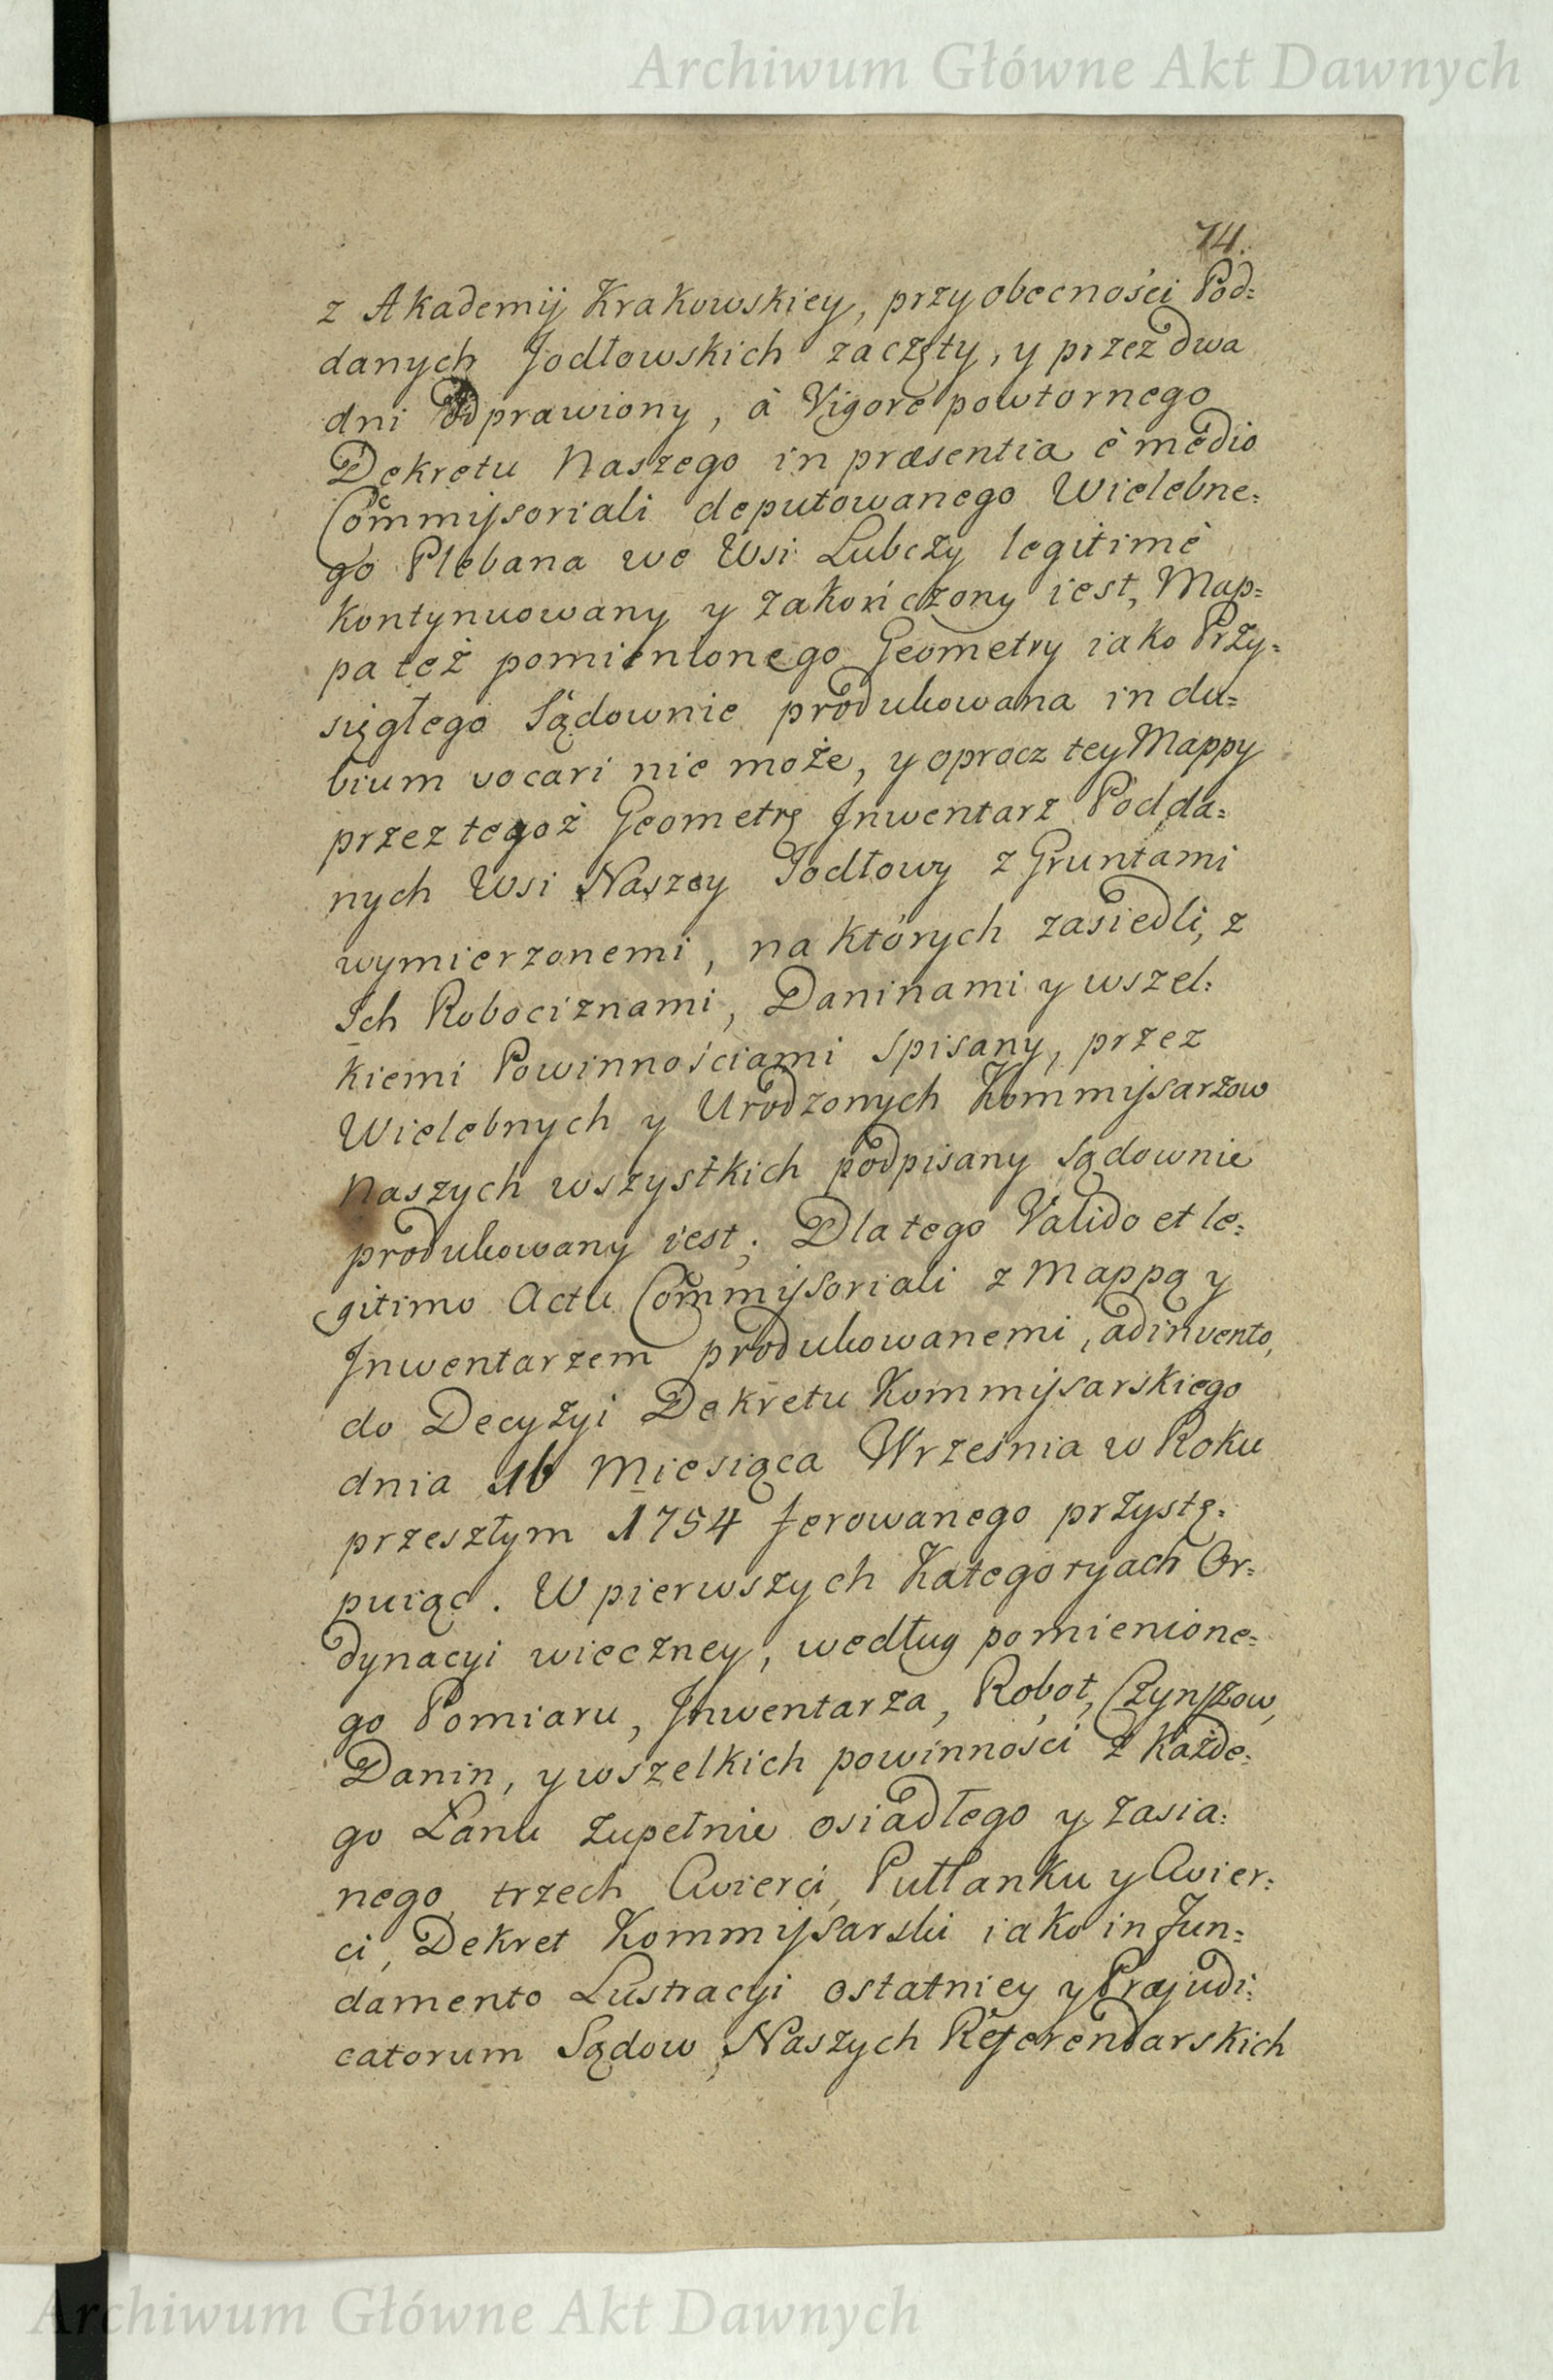 Archiwum Główne Akt Dawnych
74.
z Akademij Krakowskiey, przy obecności Pod=
danych Jodłowskich zaczęty, y przez dwa
dni odprawiony, à Vigore powtornego
Dekretu Naszego in præsentia è medio
Com̃mijsoriali deputowanego Wielebne=
go Plebana we Wsi Lubczy legitimè
kontynuowany y zakończony iest, Map=
pa też pomienionego Geometry iako Przy=
sięgłego Sądownie produkowana in du=
bium vocari nie może, y oprocz tey Mappy
przez tegoż Geometrę Inwentarz Podda=
nych Wsi Naszey Jodłowy z Gruntami
wymierzonemi, na których zasiedli, z
Ich Robociznami, Daninami y wszel=
kiemi Powinnościami spisany, przez
Wielebnych y Urodzonych Kommijsarzow
Naszych wszystkich podpisany sądownie
produkowany iest; Dla tego Valido et le=
gitimo Actu Com̃mijsoriali z Mappą y
Inwentarzem produkowanemi, adinvento,
do Decyzyi Dekretu Kommijsarskiego
dnia 16 Miesiąca Września w Roku
przeszłym 1754 ferowanego przystę=
puiąc. W pierwszych Kategoryach Or=
dynacyi wieczney, według pomienione=
go Pomiaru, Inwentarza, Robot, Czynszow,
Danin, y wszelkich powinności z każde=
go Łanu zupełnie osiadłego y zasia=
nego, trzech Cwierci, Pułłanku y Cwier=
ci, Dekret Kommijsarski iako in fun=
damento Lustracyi ostatniey y Præjudi=
catorum Sądow Naszych Referendarskich
Archiwum Główne Akt Dawnych